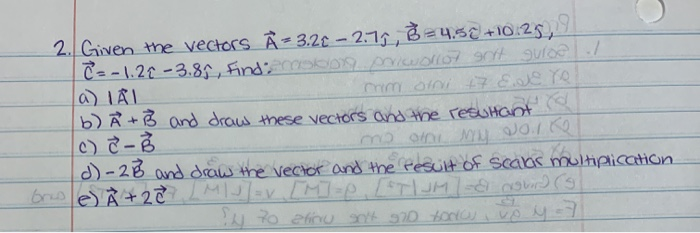 2. Given the vectors A⃗ = 3.2î - 2.7ĵ, B⃗ = 4.5î + 10.2ĵ,
C⃗ = -1.2î - 3.8ĵ, find:
a) |A⃗|
b) A⃗ + B⃗ and draw these vectors and the resultant
c) C⃗ - B⃗
d) -2B⃗ and draw the vector and the result of scalar multiplication
e) A⃗ + 2C⃗